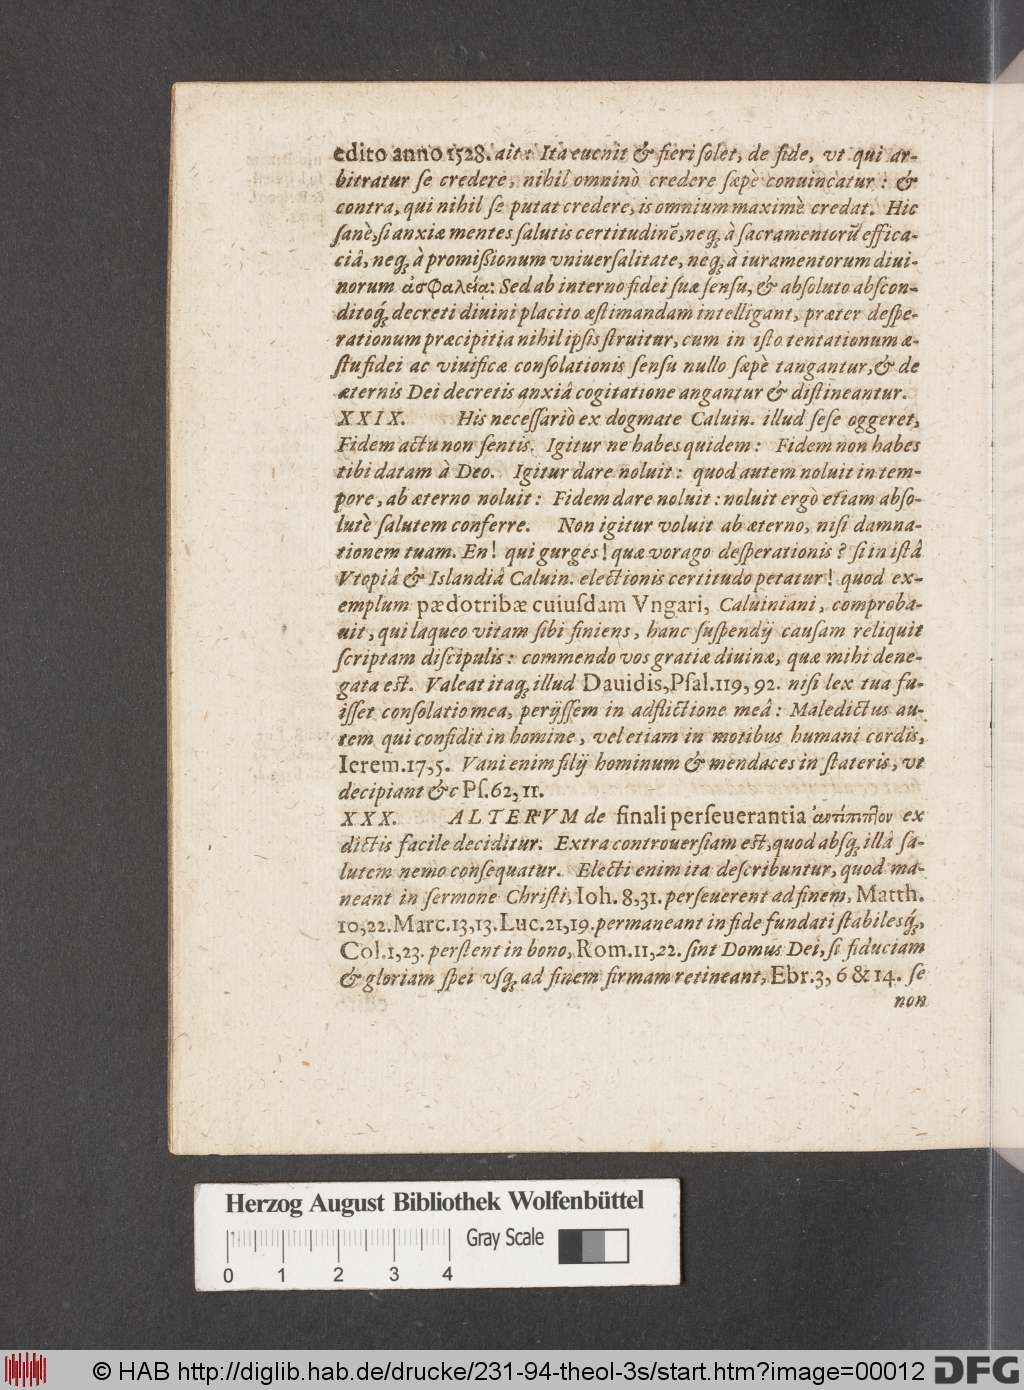 edito anno 1528. ait: Ita euenit & fieri solet, de fide, vt qui ar-
bitratur se credere, nihil omninò credere sæpè conuincatur: &
contra, qui nihil se putat credere, is omnium maximè credat. Hic
sanè, si anxiæ mentes salutis certitudinẽ, neq; à sacramentorũ effica-
ciâ, neq; à promißionum vniuersalitate, neq; à iuramentorum diui-
norum ἀσφαλείᾳ: Sed ab interno fidei suæ sensu, & absoluto abscon-
ditoq́; decreti diuini placito æstimandam intelligant, præter despe-
rationum præcipitia nihil ipsis struitur, cum in isto tentationum æ-
stu fidei ac viuificæ consolationis sensu nullo sæpè tangantur, & de
æternis Dei decretis anxiâ cogitatione angantur & distineantur.
XXIX. His necessariò ex dogmate Caluin. illud sese oggeret,
Fidem actu non sentis. Igitur ne habes quidem: Fidem non habes
tibi datam à Deo. Igitur dare noluit: quod autem noluit in tem-
pore, ab æterno noluit: Fidem dare noluit: noluit ergò etiam abso-
lutè salutem conferre. Non igitur voluit ab æterno, nisi damna-
tionem tuam. En! qui gurges! quæ vorago desperationis? si in istâ
Vtopiâ & Islandiâ Caluin. electionis certitudo petatur! quod ex-
emplum pædotribæ cuiusdam Vngari, Caluiniani, comproba-
uit, qui laqueo vitam sibi finiens, hanc suspendij causam reliquit
scriptam discipulis: commendo vos gratiæ diuinæ, quæ mihi dene-
gata est. Valeat itaq; illud Dauidis, Psal. 119, 92. nisi lex tua fu-
isset consolatio mea, perijssem in adflictione meâ: Maledictus au-
tem qui confidit in homine, vel etiam in motibus humani cordis,
Ierem. 17, 5. Vani enim filij hominum & mendaces in stateris, vt
decipiant &c Ps. 62, 11.
XXX. ALTERVM de finali perseuerantia ex
dictis facile deciditur. Extra controuersiam est, quod absq; illâ sa-
lutem nemo consequatur. Electi enim ita describuntur, quod ma-
neant in sermone Christi, Ioh. 8, 31. perseuerent ad finem, Matth.
10, 22. Marc. 13, 13. Luc. 21, 19. permaneant in fide fundati stabilesq́;,
Col. 1, 23. perstent in bono, Rom. 11, 22. sint Domus Dei, si fiduciam
& gloriam spei vsq; ad finem firmam retineant, Ebr. 3, 6 & 14. se
non
Herzog August Bibliothek Wolfenbüttel
Gray Scale
0 1 2 3 4
© HAB http://diglib.hab.de/drucke/231-94-theol-3s/start.htm?image=00012 DFG